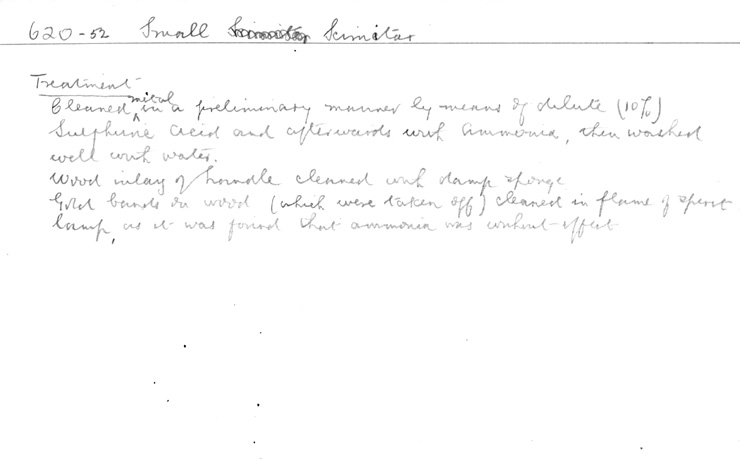 620-52 Small Scimitar Scimitar
Treatment
Cleaned metal in a preliminary manner by means of dilute (10%)
Sulphuric acid and afterwards with ammonia, then washed
well with water.
Wood inlay of handle cleaned with damp sponge
Gold bands on wood (which were taken off) cleaned in flame of spirit
lamp, as it was found that ammonia was without effect